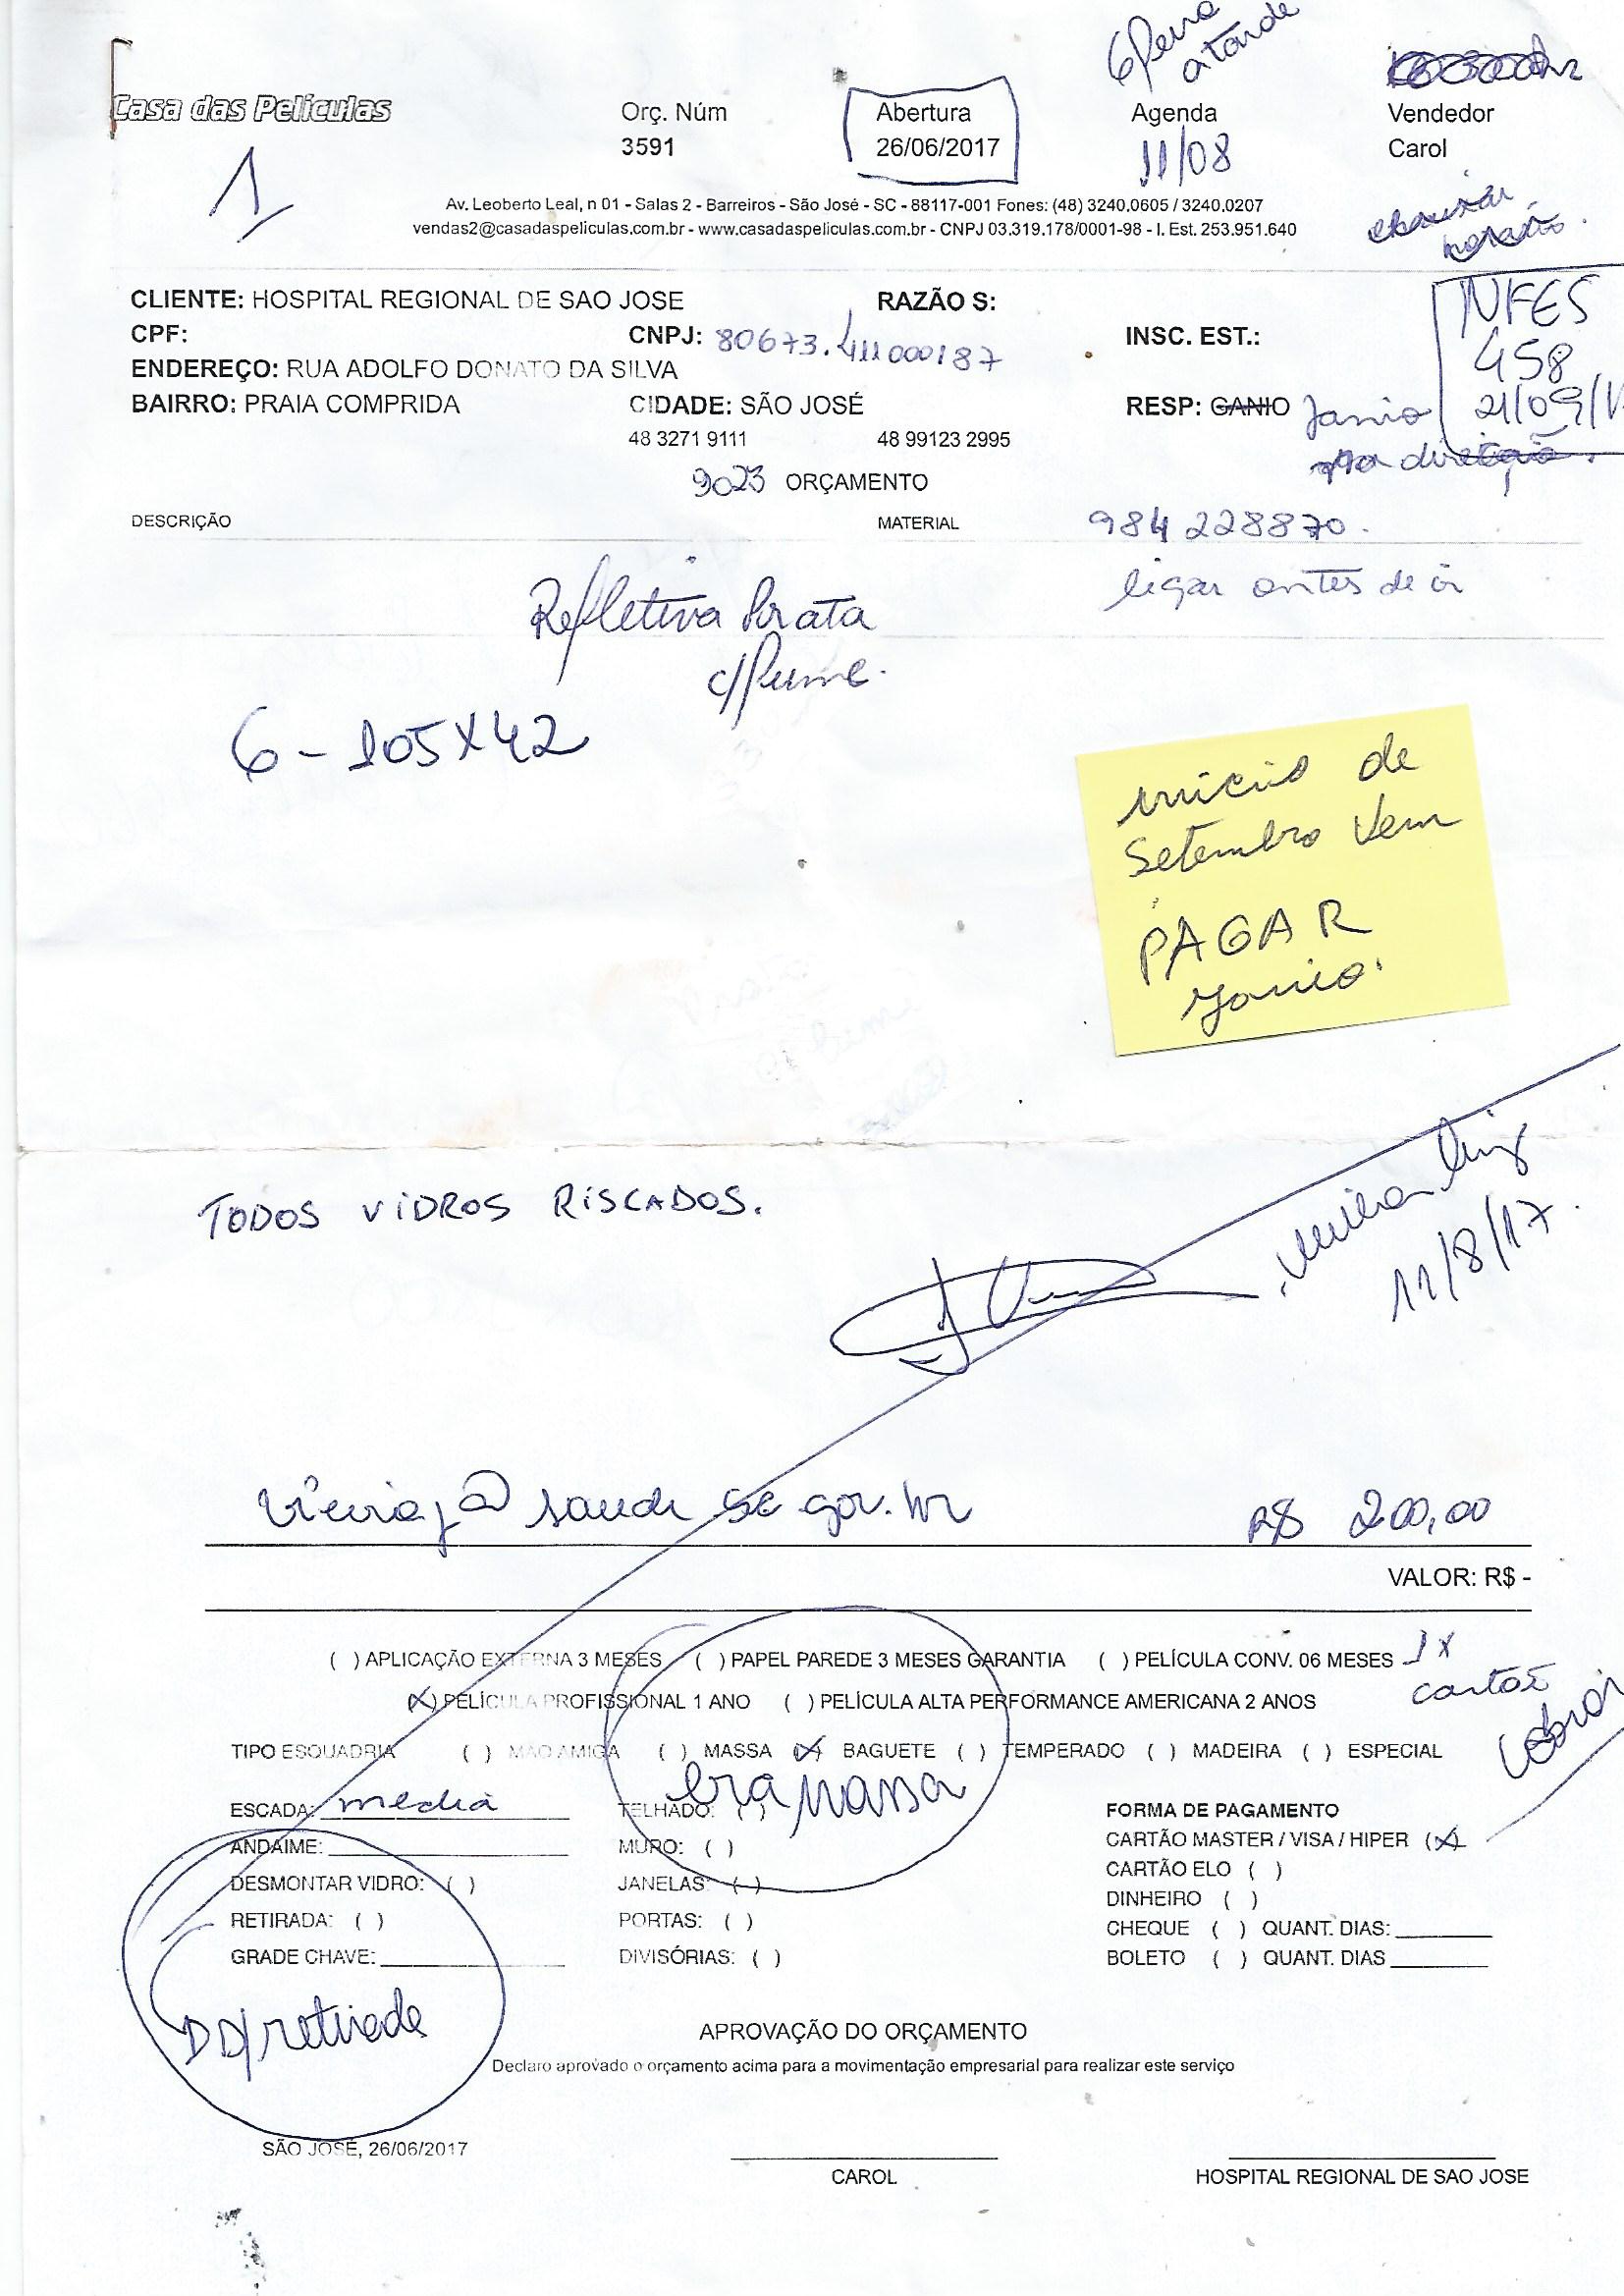 6ª feira
a tarde
Casa das Películas
Orç. Núm
Abertura
Agenda
Vendedor
3591
26/06/2017
11/08
Carol
1
Av. Leoberto Leal, n 01 - Salas 2 - Barreiros - São José - SC - 88117-001 Fones: (48) 3240.0605 / 3240.0207
vendas2@casadaspeliculas.com.br - www.casadaspeliculas.com.br - CNPJ 03.319.178/0001-98 - I. Est. 253.951.640
CLIENTE: HOSPITAL REGIONAL DE SAO JOSE
RAZÃO S:
NFES
CPF:
CNPJ: 80673.411000187
INSC. EST.:
458
ENDEREÇO: RUA ADOLFO DONATO DA SILVA
BAIRRO: PRAIA COMPRIDA
CIDADE: SÃO JOSÉ
RESP: GANIO Janio
21/09/1
48 3271 9111
48 99123 2995
9023 ORÇAMENTO
DESCRIÇÃO
MATERIAL
984 228870.
ligar antes de ir
Refletiva Prata
c/Pume.
6 - 105x42
inicio de
Setembro vem
PAGAR
Janio.
TODOS VIDROS RISCADOS.
11/8/17.
vieiraj@saude.sc.gov.br
R$ 200,00
VALOR: R$ -
( ) APLICAÇÃO EXTERNA 3 MESES ( ) PAPEL PAREDE 3 MESES GARANTIA ( ) PELÍCULA CONV. 06 MESES
1x
cartão
(X) PELÍCULA PROFISSIONAL 1 ANO ( ) PELÍCULA ALTA PERFORMANCE AMERICANA 2 ANOS
Cobrar
TIPO ESQUADRIA ( ) MÃO AMIGA ( ) MASSA (X) BAGUETE ( ) TEMPERADO ( ) MADEIRA ( ) ESPECIAL
era massa
ESCADA: media
TELHADO: ( )
FORMA DE PAGAMENTO
ANDAIME:
MURO: ( )
CARTÃO MASTER / VISA / HIPER (X)
DESMONTAR VIDRO: ( )
JANELAS: ( )
CARTÃO ELO ( )
RETIRADA: ( )
PORTAS: ( )
DINHEIRO ( )
GRADE CHAVE:
DIVISÓRIAS: ( )
CHEQUE ( ) QUANT. DIAS:
BOLETO ( ) QUANT. DIAS
retirada
APROVAÇÃO DO ORÇAMENTO
Declaro aprovado o orçamento acima para a movimentação empresarial para realizar este serviço
SÃO JOSÉ, 26/06/2017
CAROL
HOSPITAL REGIONAL DE SAO JOSE